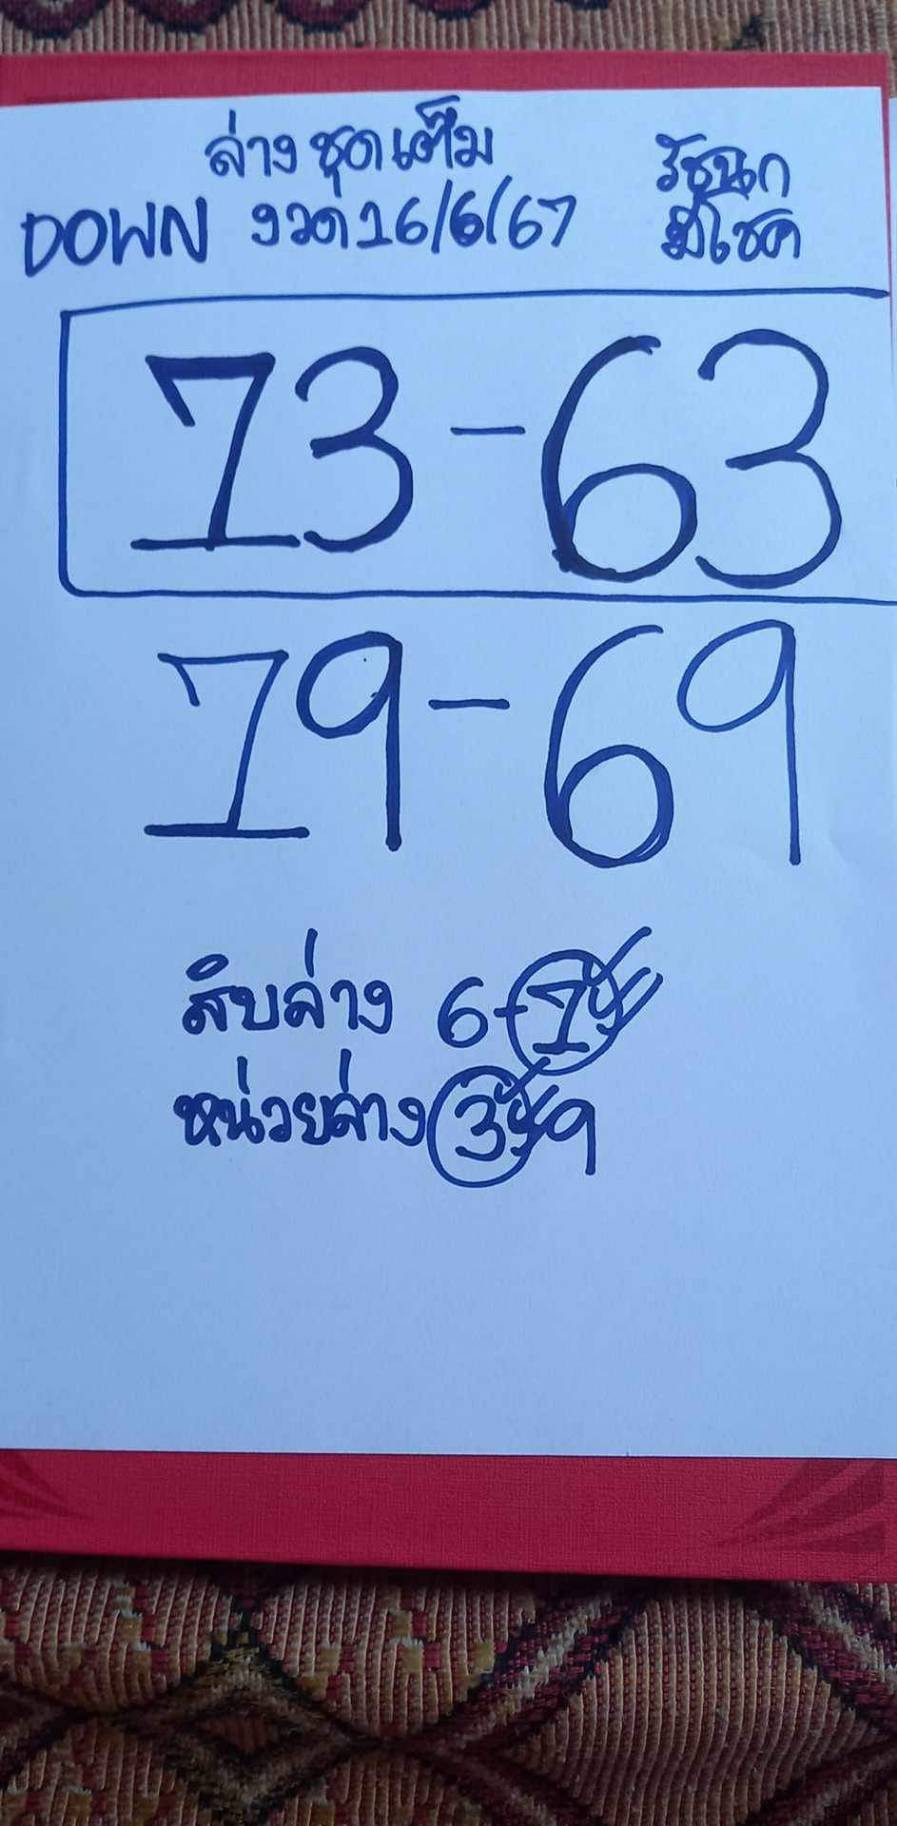 ล่าง ชุดเต็ม
DOWN งวด 16/6/67
รัชนก
มีโชค
73-63
79-69
สิบล่าง 6-7
หน่วยล่าง 3-9